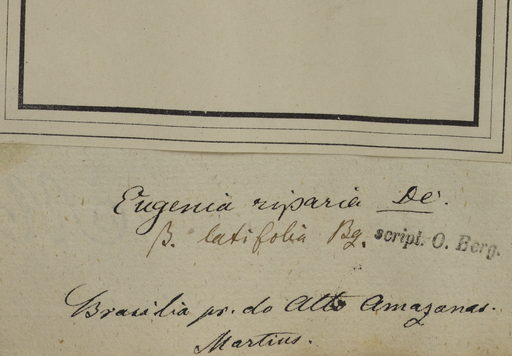 Eugenia riparia DC.
β. latifolia Bg. script. O. Berg.
Brasilia pr. do Alto Amazonas.
Martius.